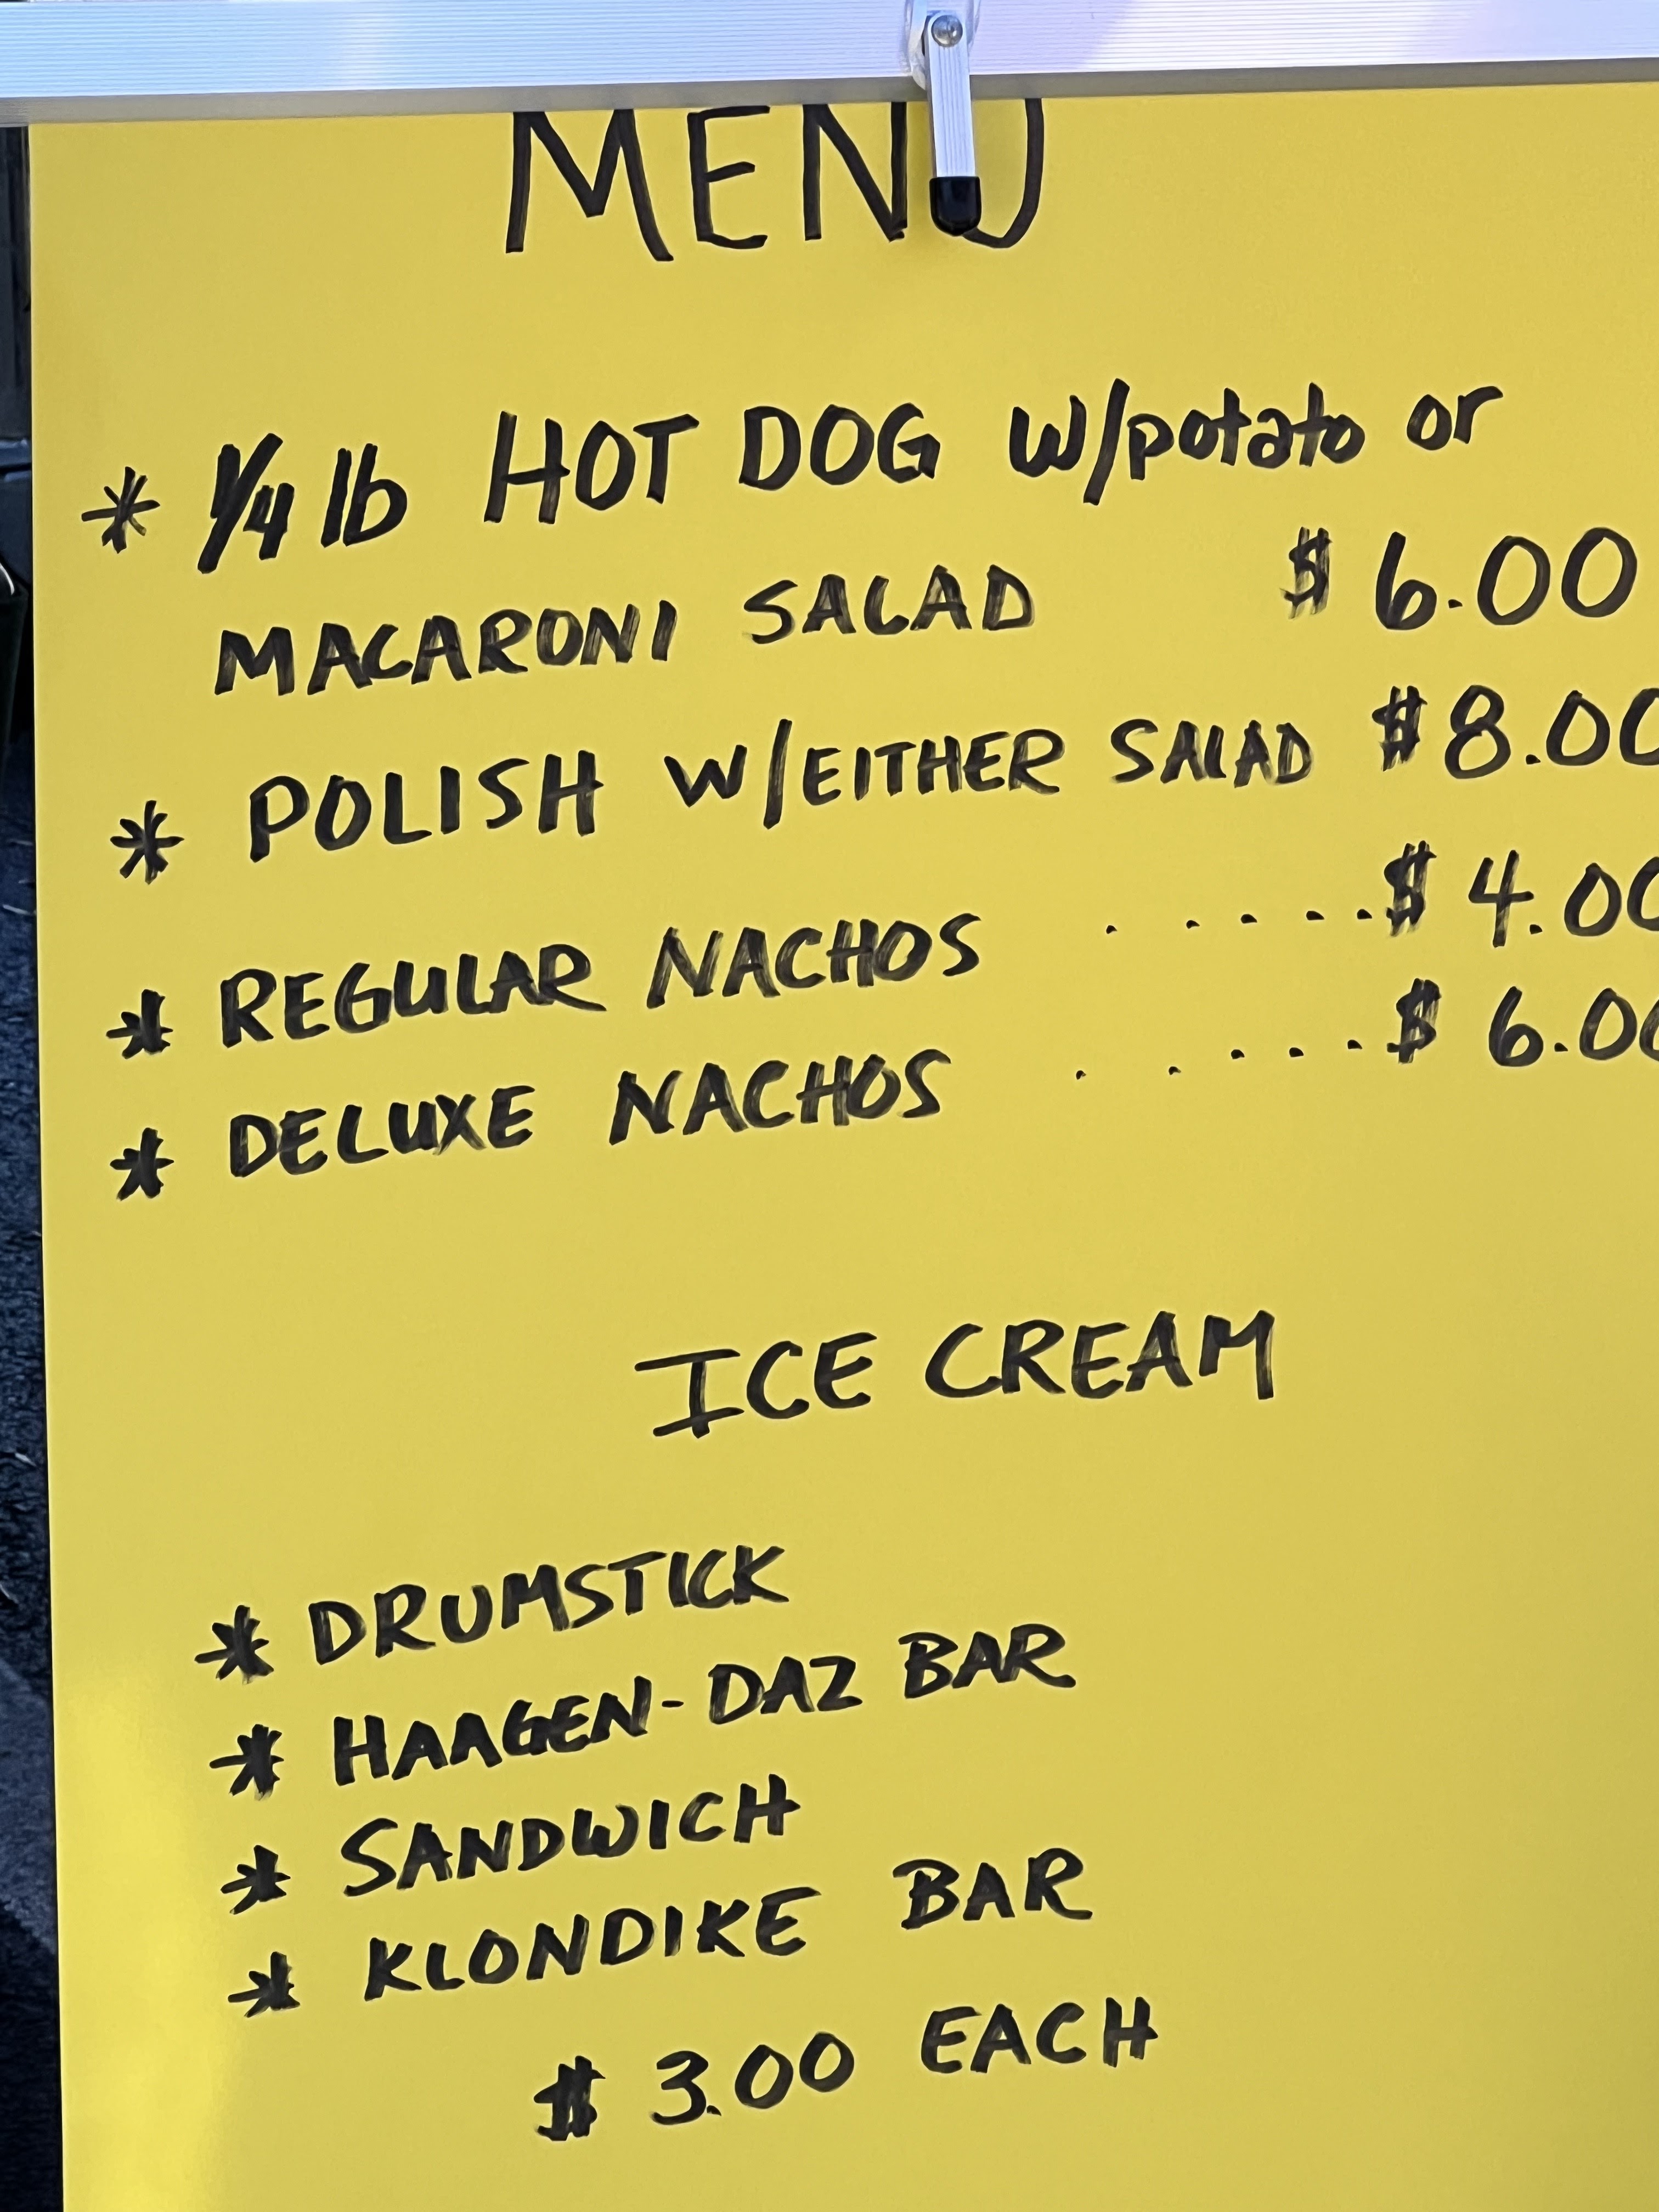 MENU
* 1/4 lb HOT DOG W/potato or
MACARONI SALAD $ 6.00
* POLISH W/EITHER SALAD $8.00
* REGULAR NACHOS . . . . . $ 4.00
* DELUXE NACHOS . . . . . $ 6.00
ICE CREAM
* DRUMSTICK
* HAAGEN-DAZ BAR
* SANDWICH
* KLONDIKE BAR
$ 3.00 EACH